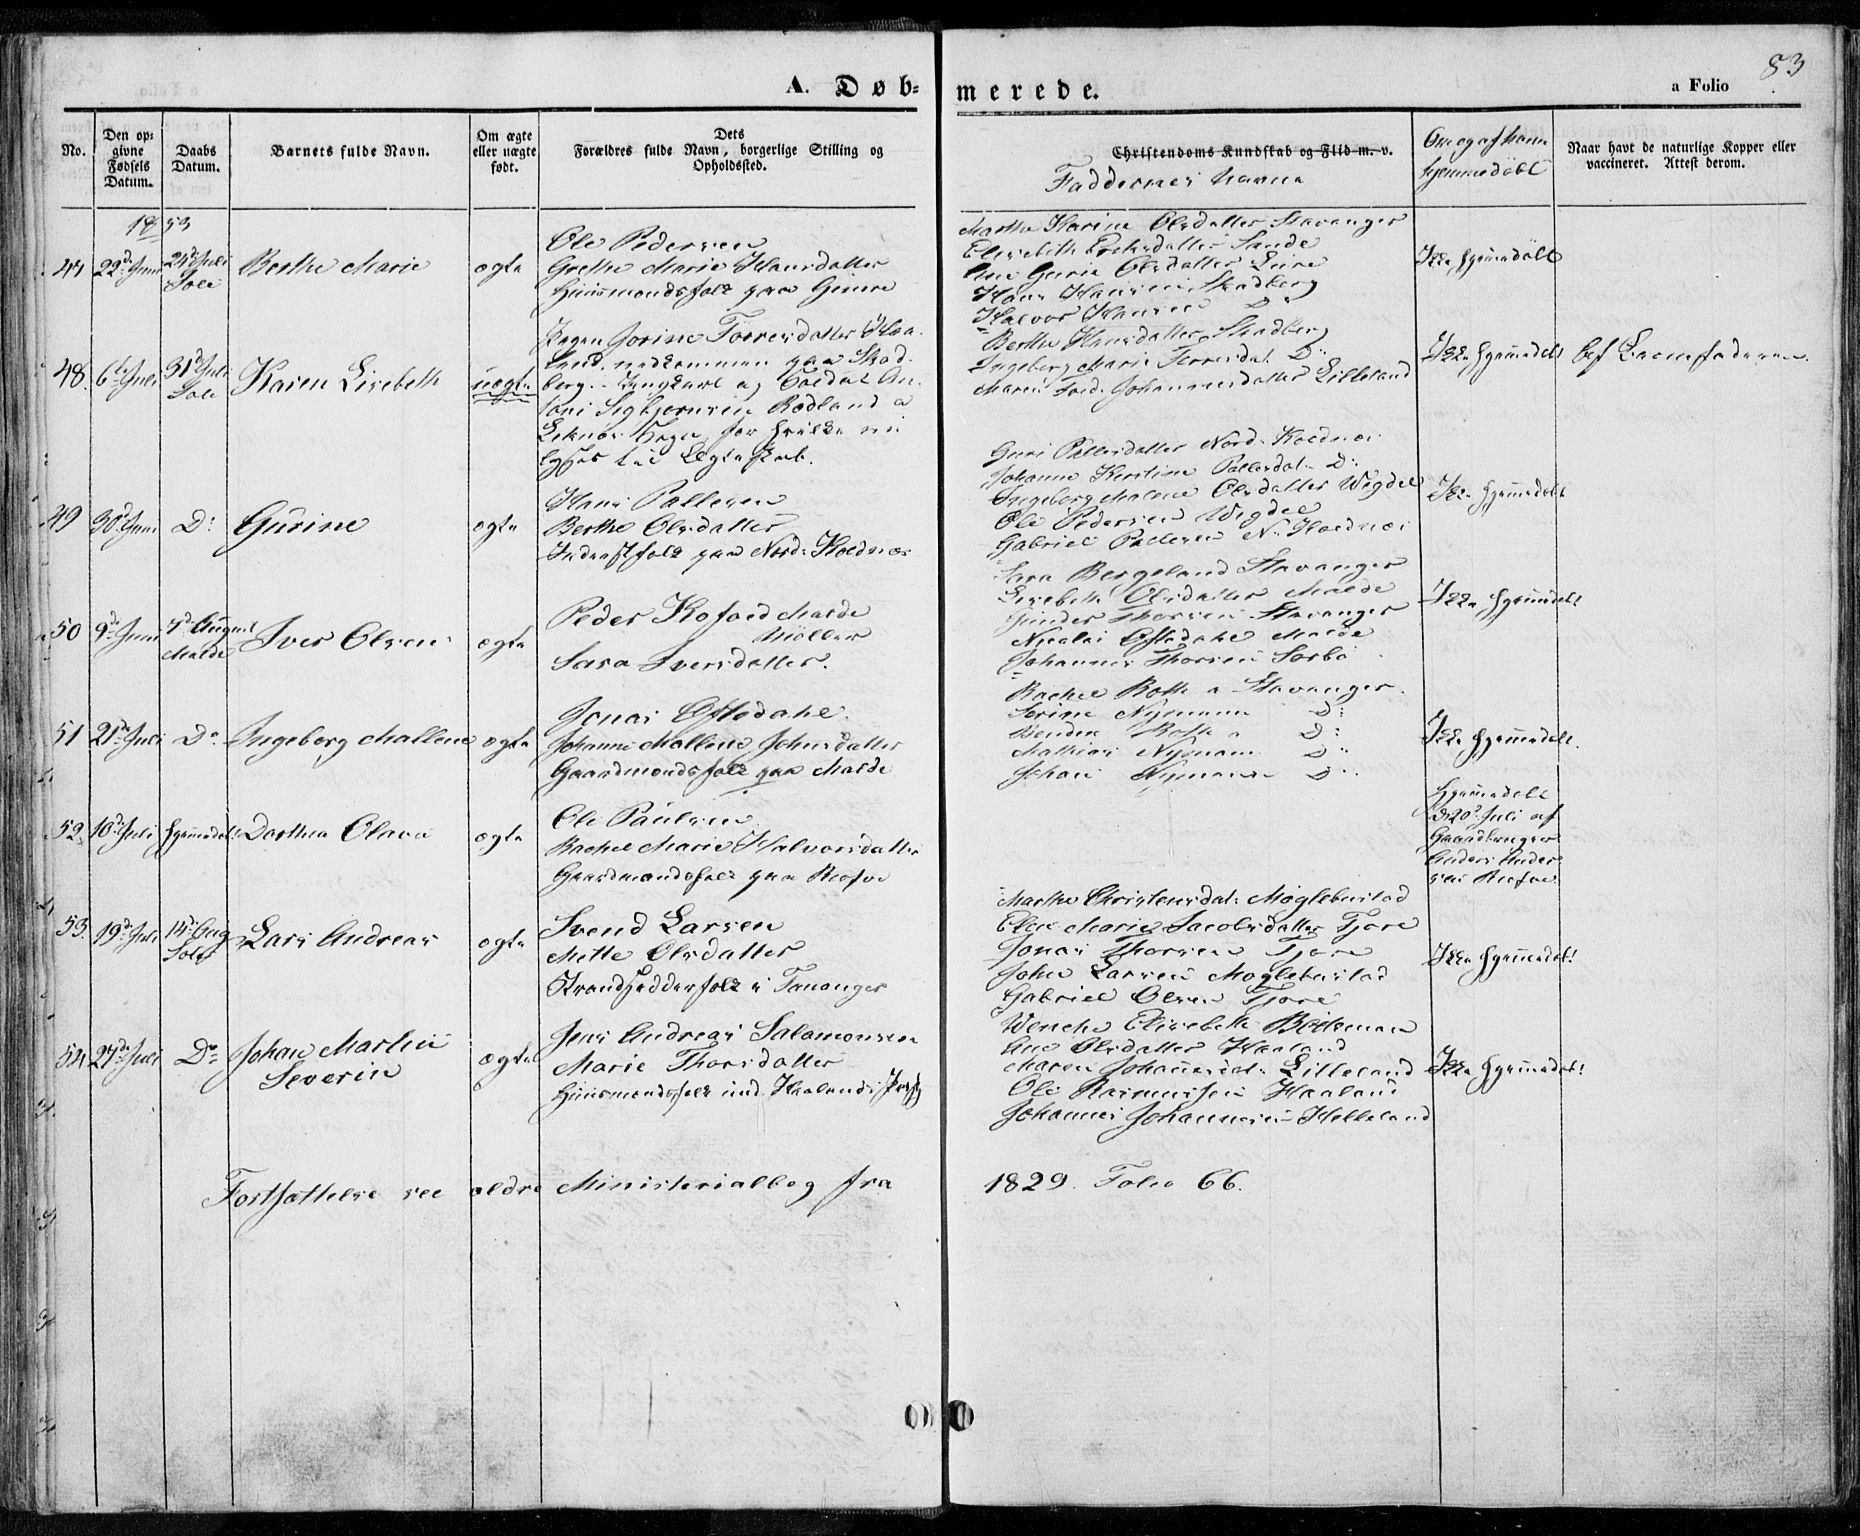 83
A. Døb-
merede.
a Folio
No.
Den op-
givne
Fødsels
Datum.
Daabs
Datum.
Barnets fulde Navn.
Om ægte
eller uægte
født.
Dets
Forældres fulde Navn, borgerlige Stilling og
Opholdssted.
Christendoms Kundskab og Flid m. v.
Faddernes Navne
Om og af hvem
hjemmedøbt
Naar havt de naturlige Kopper eller
vaccineret. Attest derom.
1853
47
22d Juni
24d Juli
Sole
Berthe Marie
ægte
Ole Pedersen
Grethe Marie Hansdatter
Huusmandsfolk paa
Marthe Karine Olsdatter Stavanger
Elisebeth Eriksdatter Sande
Ane Gurie Olsdatter
Hans Hansen Skadberg
Halvor Hansen D:
Ikke hjemmedøbt
48.
6te Juli
31d Juli
Sole
Karen Lisebeth
uægte
Pigen Gorine Torresdatter Haa-
land, nedkommen paa Skad-
berg. Ungkarl og Soldat An-
toni Sigbjørnsen Rødland a
Sogn, for hvilke nu
lyses til Ægteskab.
Berthe Hansdatter Skadberg
Ingeborg Marie Torresdat. D:
Maren Johannesdatter Lilleland
Ikke hjemmedøbt
bef Barnefaderen.
49
30d Juni
D:
Gurine
ægte
Hans Pallesen
Berthe Olsdatter
folk paa Nord: Koldnæs
Guri Pallesdatter Nord: Koldnæs
Johanne Kirstine Pallesdat: D:
Ingeborg Malene Olsdatter Wigdel
Ole Pedersen Wigdel
Gabriel Pallesen N: Koldnæs
Ikke hjemmedøbt
50
9d Juni
7d August
Malde
Iver Olsen
ægte
Peder Kofoed Malde
Møller
Sara Iversdatter.
Sara Bergeland Stavanger
Lisebeth Olsdatter Malde
Thorsen Stavanger
Nicolai Oftedahl Malde
Johannes Thorsen Sørbø
Ikke hjemmedøbt
51
21d Juli
D:
Ingeborg Mallene
ægte
Jonas Oftedahl.
Johanne Mallene Johnsdatter
Gaardmandsfolk paa Malde
Rachel Stavanger.
Serine Nymann D:
D:
Mathias Nymann D:
Johan Nymann D:
Ikke hjemmedøbt.
52
10d Juli
hjemmedøbt
Dorthea Olava
ægte
Ole Paulsen
Rachel Marie Halvorsdatter
Gaardmandsfolk paa
Hjemmedøbt
d 20d Juli af
Gaardbruger
Anders Ander-
sen
53.
19d Juli
14d Aug
Sole
Lars Andreas
ægte
Svend Larsen
Mette Olsdatter
Strandsidderfolk i Tananger
Marthe Christensdat: Møglebustad
Elen Marie Jacobsdatter Tjore
Jonas Thorsen Tjore
John Larsen Møglebustad
Gabriel Olsen Tjore
Ikke hjemmedøbt
54
27d Juli
D:
Johan Martin
Severin
ægte
Jens Andreas Salamonsen
Marie Thorsdatter
Huusmandsfolk und Haalands
Wenche Elisebeth
Ane Olsdatter Haaland
Maren Johannesdat: Lilleland
Ole Rasmussen Haaland
Johannes Johannesen Helleland
Ikke hjemmedøbt
Fortsættelse see ældre Ministerialbog fra 1829 Folio 66.